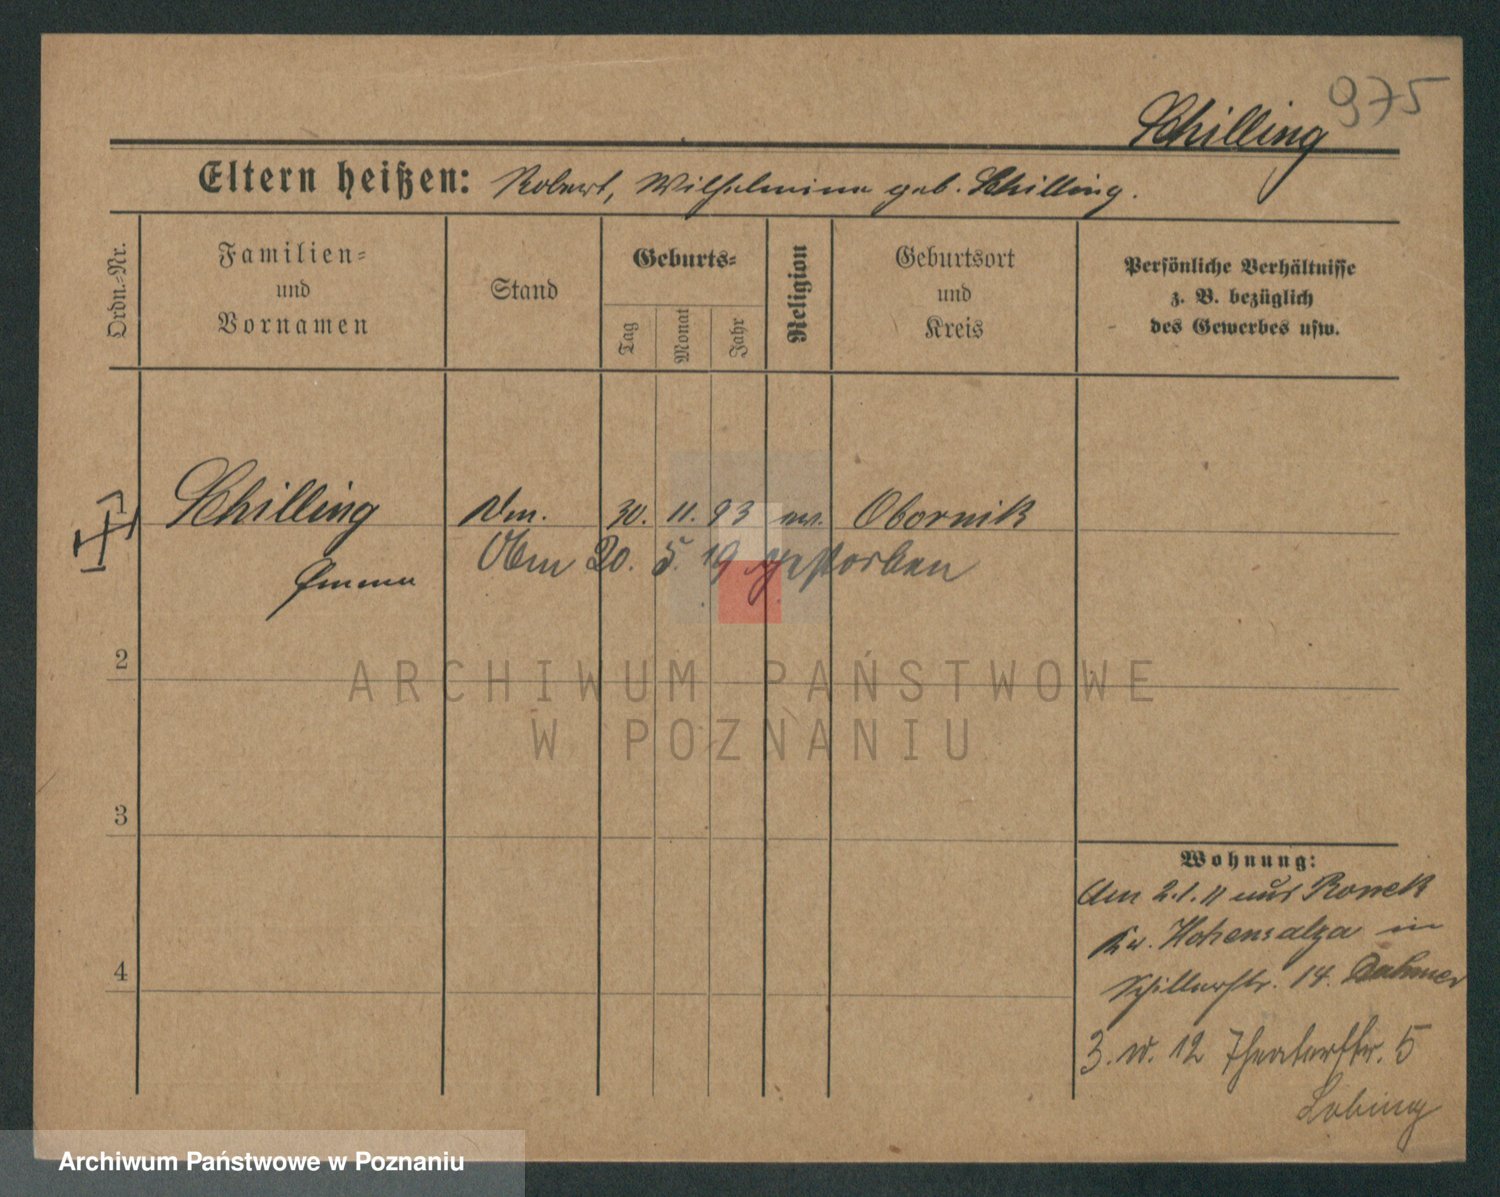 975
Schilling
Eltern heißen: Robert, Wilhelmine geb. Schilling.
Ordn.-Nr.
Familien-
und
Vornamen
Stand
Geburts-
Tag
Monat
Jahr
Religion
Geburtsort
und
Kreis
Persönliche Verhältnisse
z. B. bezüglich
des Gewerbes usw.
Schilling 30. 11. 93 ev. Obornik
Emma
Am 20. 5. 19 gestorben
2
3
4
Wohnung:
Am 2.1.11 aus
Kr. Hohensalza in
Schillerstr. 14.
3. 12 Theaterstr. 5
ARCHIWUM PAŃSTWOWE
W POZNANIU
Archiwum Państwowe w Poznaniu